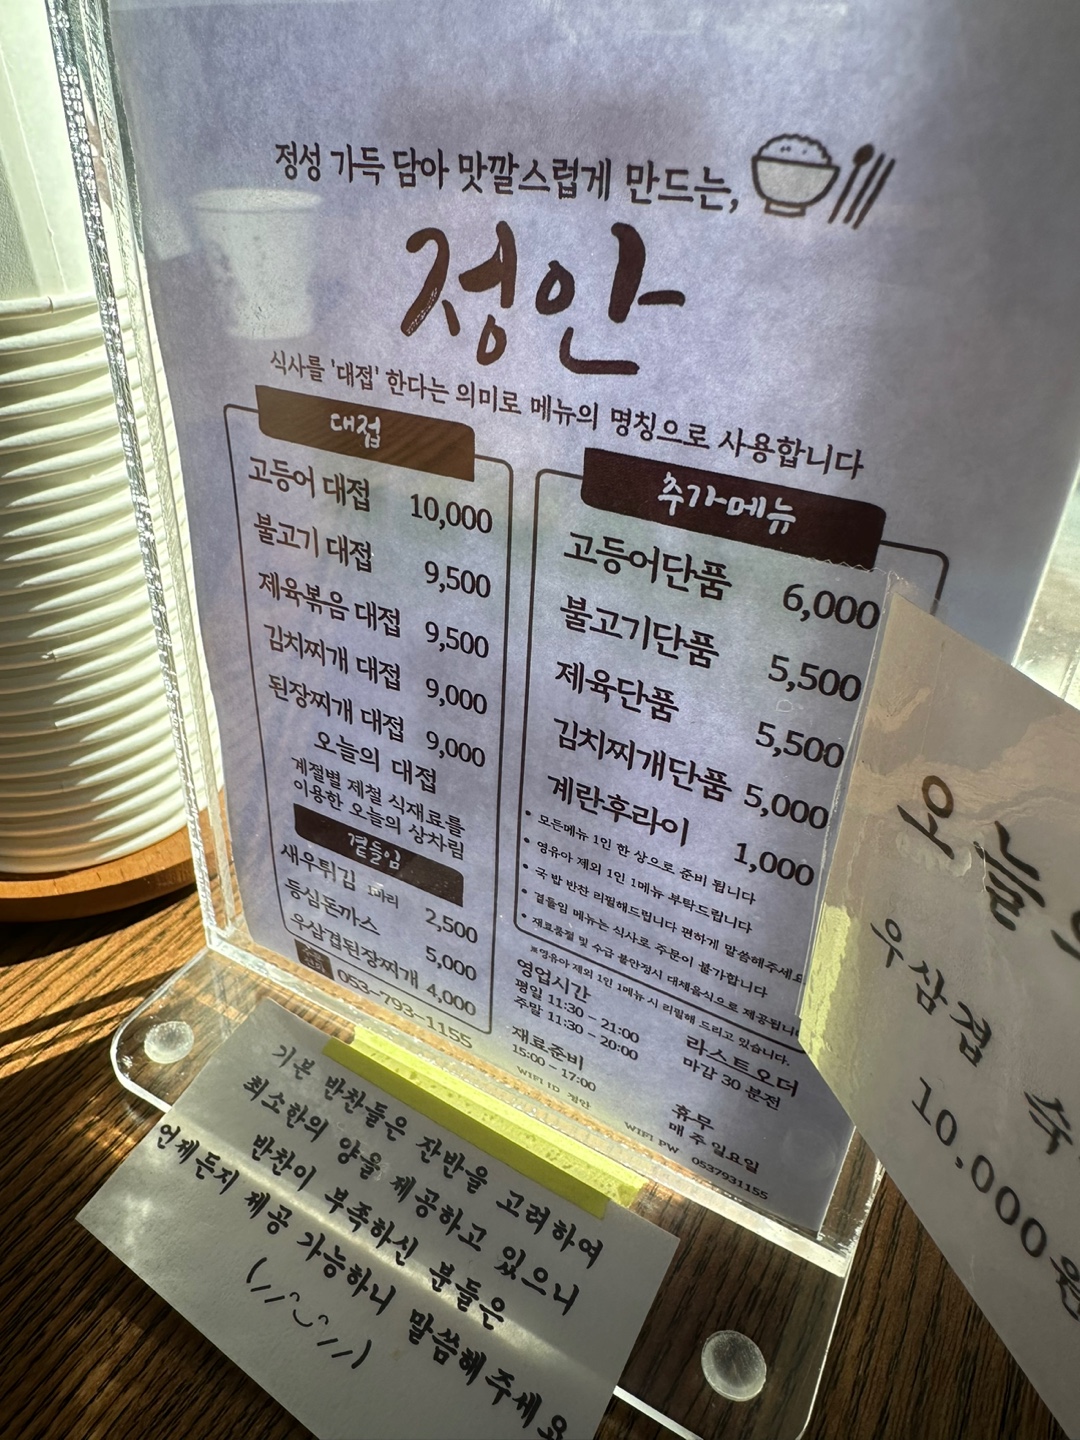 정성 가득 담아 맛깔스럽게 만드는,
정안
식사를 '대접' 한다는 의미로 메뉴의 명칭으로 사용합니다
대접
고등어 대접 10,000
불고기 대접 9,500
제육볶음 대접 9,500
김치찌개 대접 9,000
된장찌개 대접 9,000
오늘의 대접
계절별 제철 식재료를
이용한 오늘의 상차림
곁들임
새우튀김 2,500
등심돈까스 5,000
우삼겹된장찌개 4,000
053-793-1155
추가메뉴
고등어단품 6,000
불고기단품 5,500
제육단품 5,500
김치찌개단품 5,000
계란후라이 1,000
• 모든메뉴 1인 한 상으로 준비 됩니다
• 영유아 제외 1인 1메뉴 부탁드립니다
• 국 밥 반찬 리필해드립니다 편하게 말씀해주세요
• 곁들임 메뉴는 식사로 주문이 불가합니다
• 재료품절 및 수급 불안정시 대체음식으로 제공됩니다
※영유아 제외 1인 1메뉴 시 리필해 드리고 있습니다.
영업시간
평일 11:30 - 21:00
주말 11:30 - 20:00
라스트오더
마감 30 분전
재료준비
15:00 - 17:00
휴무
매 주 일요일
WIFI ID 정안
WIFI PW 0537931155
기본 반찬들은 잔반을 고려하여
최소한의 양을 제공하고 있으니
반찬이 부족하신 분들은
언제든지 제공 가능하니 말씀해주세요
오늘
우삼겹 숙
10,000원